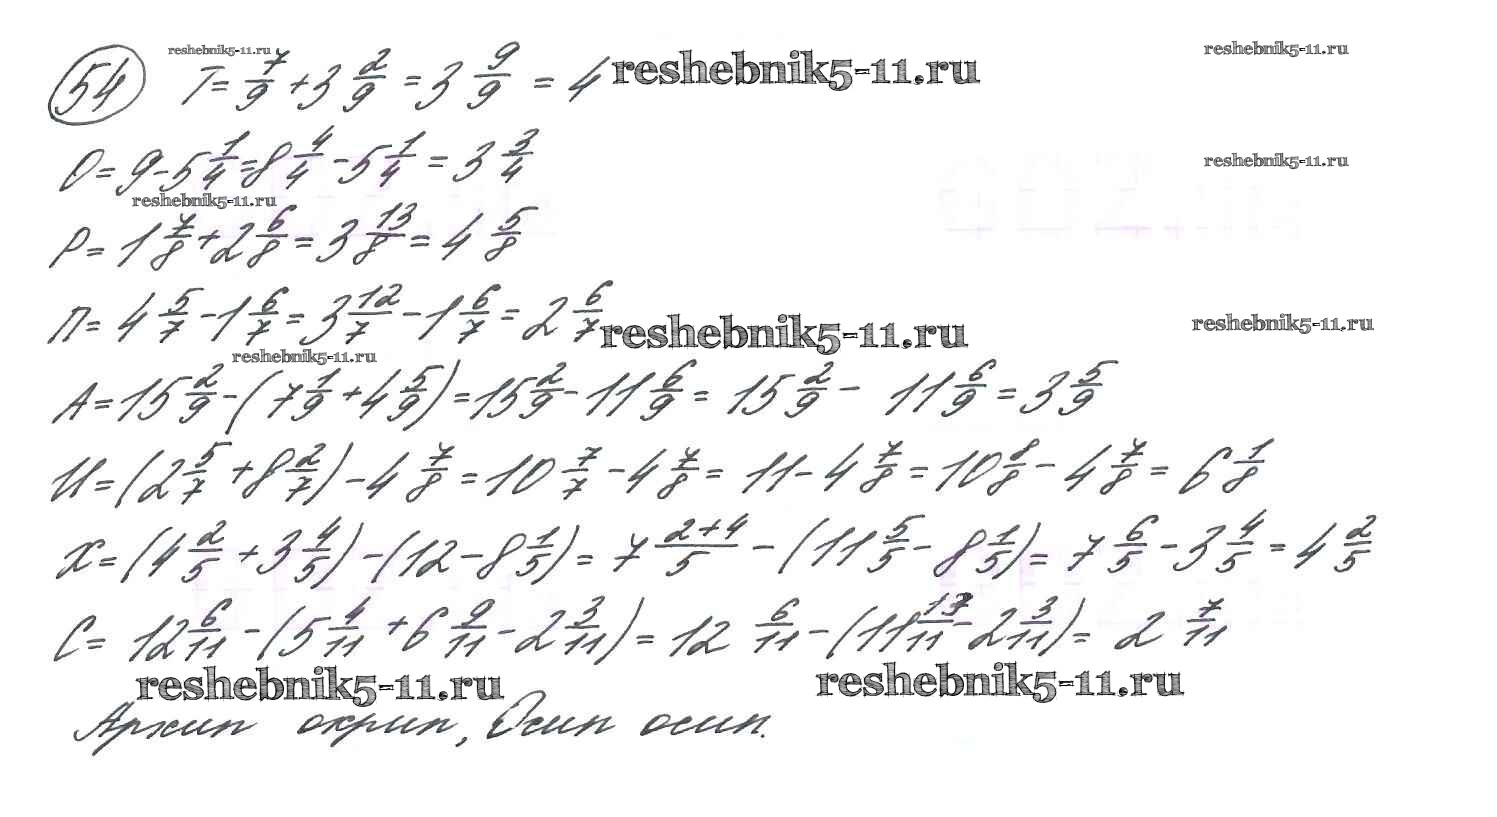 reshebnik5-11.ru
54 Т = 7/9 + 3 2/9 = 3 9/9 = 4 reshebnik5-11.ru
reshebnik5-11.ru
О = 9 - 5 1/4 = 8 4/4 - 5 1/4 = 3 3/4
reshebnik5-11.ru
reshebnik5-11.ru
Р = 1 7/8 + 2 6/8 = 3 13/8 = 4 5/8
П = 4 5/7 - 1 6/7 = 3 12/7 - 1 6/7 = 2 6/7
reshebnik5-11.ru
reshebnik5-11.ru
reshebnik5-11.ru
А = 15 2/9 - (7 1/9 + 4 5/9) = 15 2/9 - 11 6/9 = 15 2/9 - 11 6/9 = 3 5/9
И = (2 5/7 + 8 2/7) - 4 7/8 = 10 7/7 - 4 7/8 = 11 - 4 7/8 = 10 8/8 - 4 7/8 = 6 1/8
Х = (4 2/5 + 3 4/5) - (12 - 8 1/5) = 7 2+4/5 - (11 5/5 - 8 1/5) = 7 6/5 - 3 4/5 = 4 2/5
С = 12 6/11 - (5 4/11 + 6 9/11 - 2 3/11) = 12 6/11 - (11 13/11 - 2 3/11) = 2 7/11
reshebnik5-11.ru reshebnik5-11.ru
Архип охрип, Осип осип.